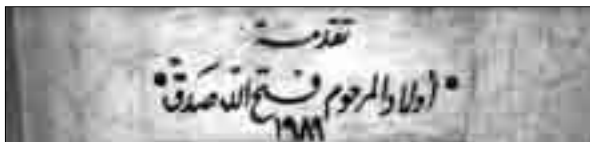 تقدمة
• أولاد المرحوم فتح الله صدقي •
١٩٨٩